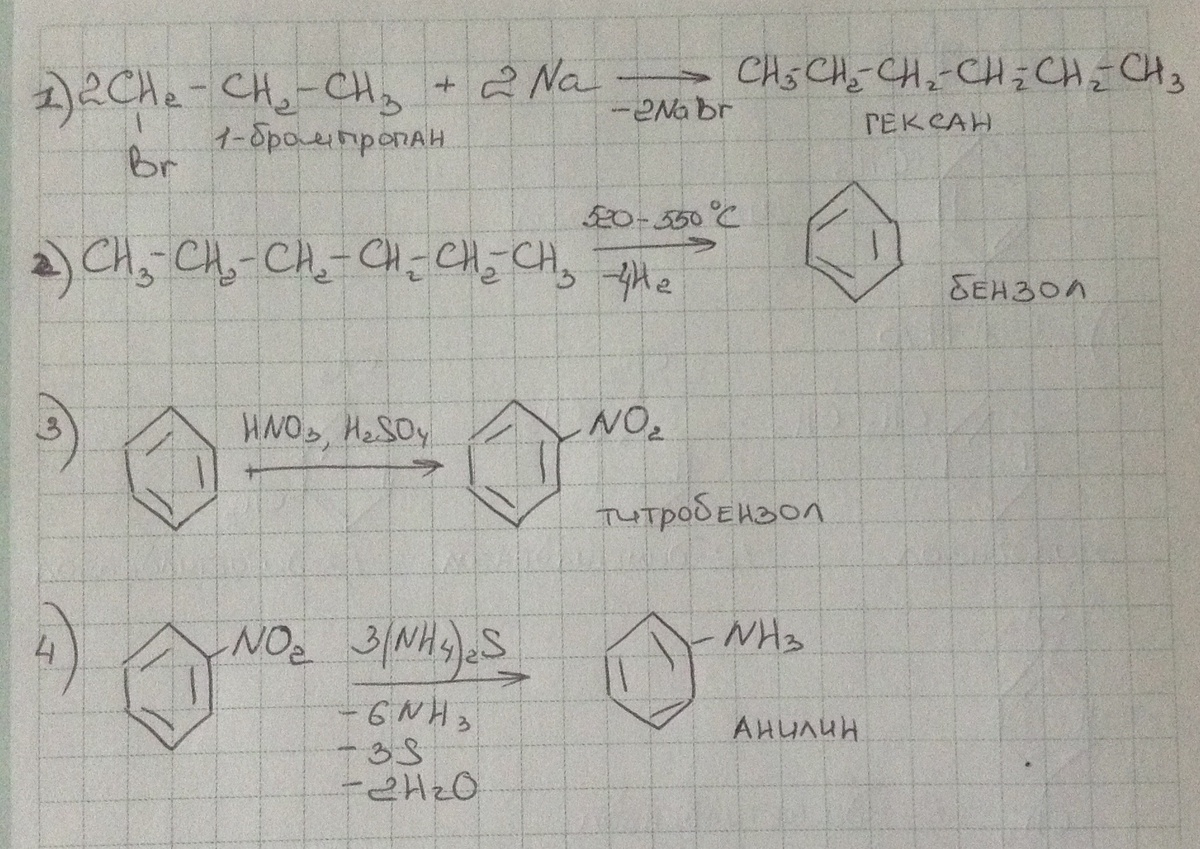 1) 2CH₂-CH₂-CH₃ + 2Na ⟶ CH₃-CH₂-CH₂-CH₂-CH₂-CH₃
-2NaBr
Br 1-бромпропан ГЕКСАН
2) CH₃-CH₂-CH₂-CH₂-CH₂-CH₃ 520-550°C
-4H₂
БЕНЗОЛ
3) HNO₃, H₂SO₄ NO₂
титробЕНЗОЛ
4) NO₂ 3(NH₄)₂S NH₃
-6NH₃
-3S
-2H₂O
АНИЛИН